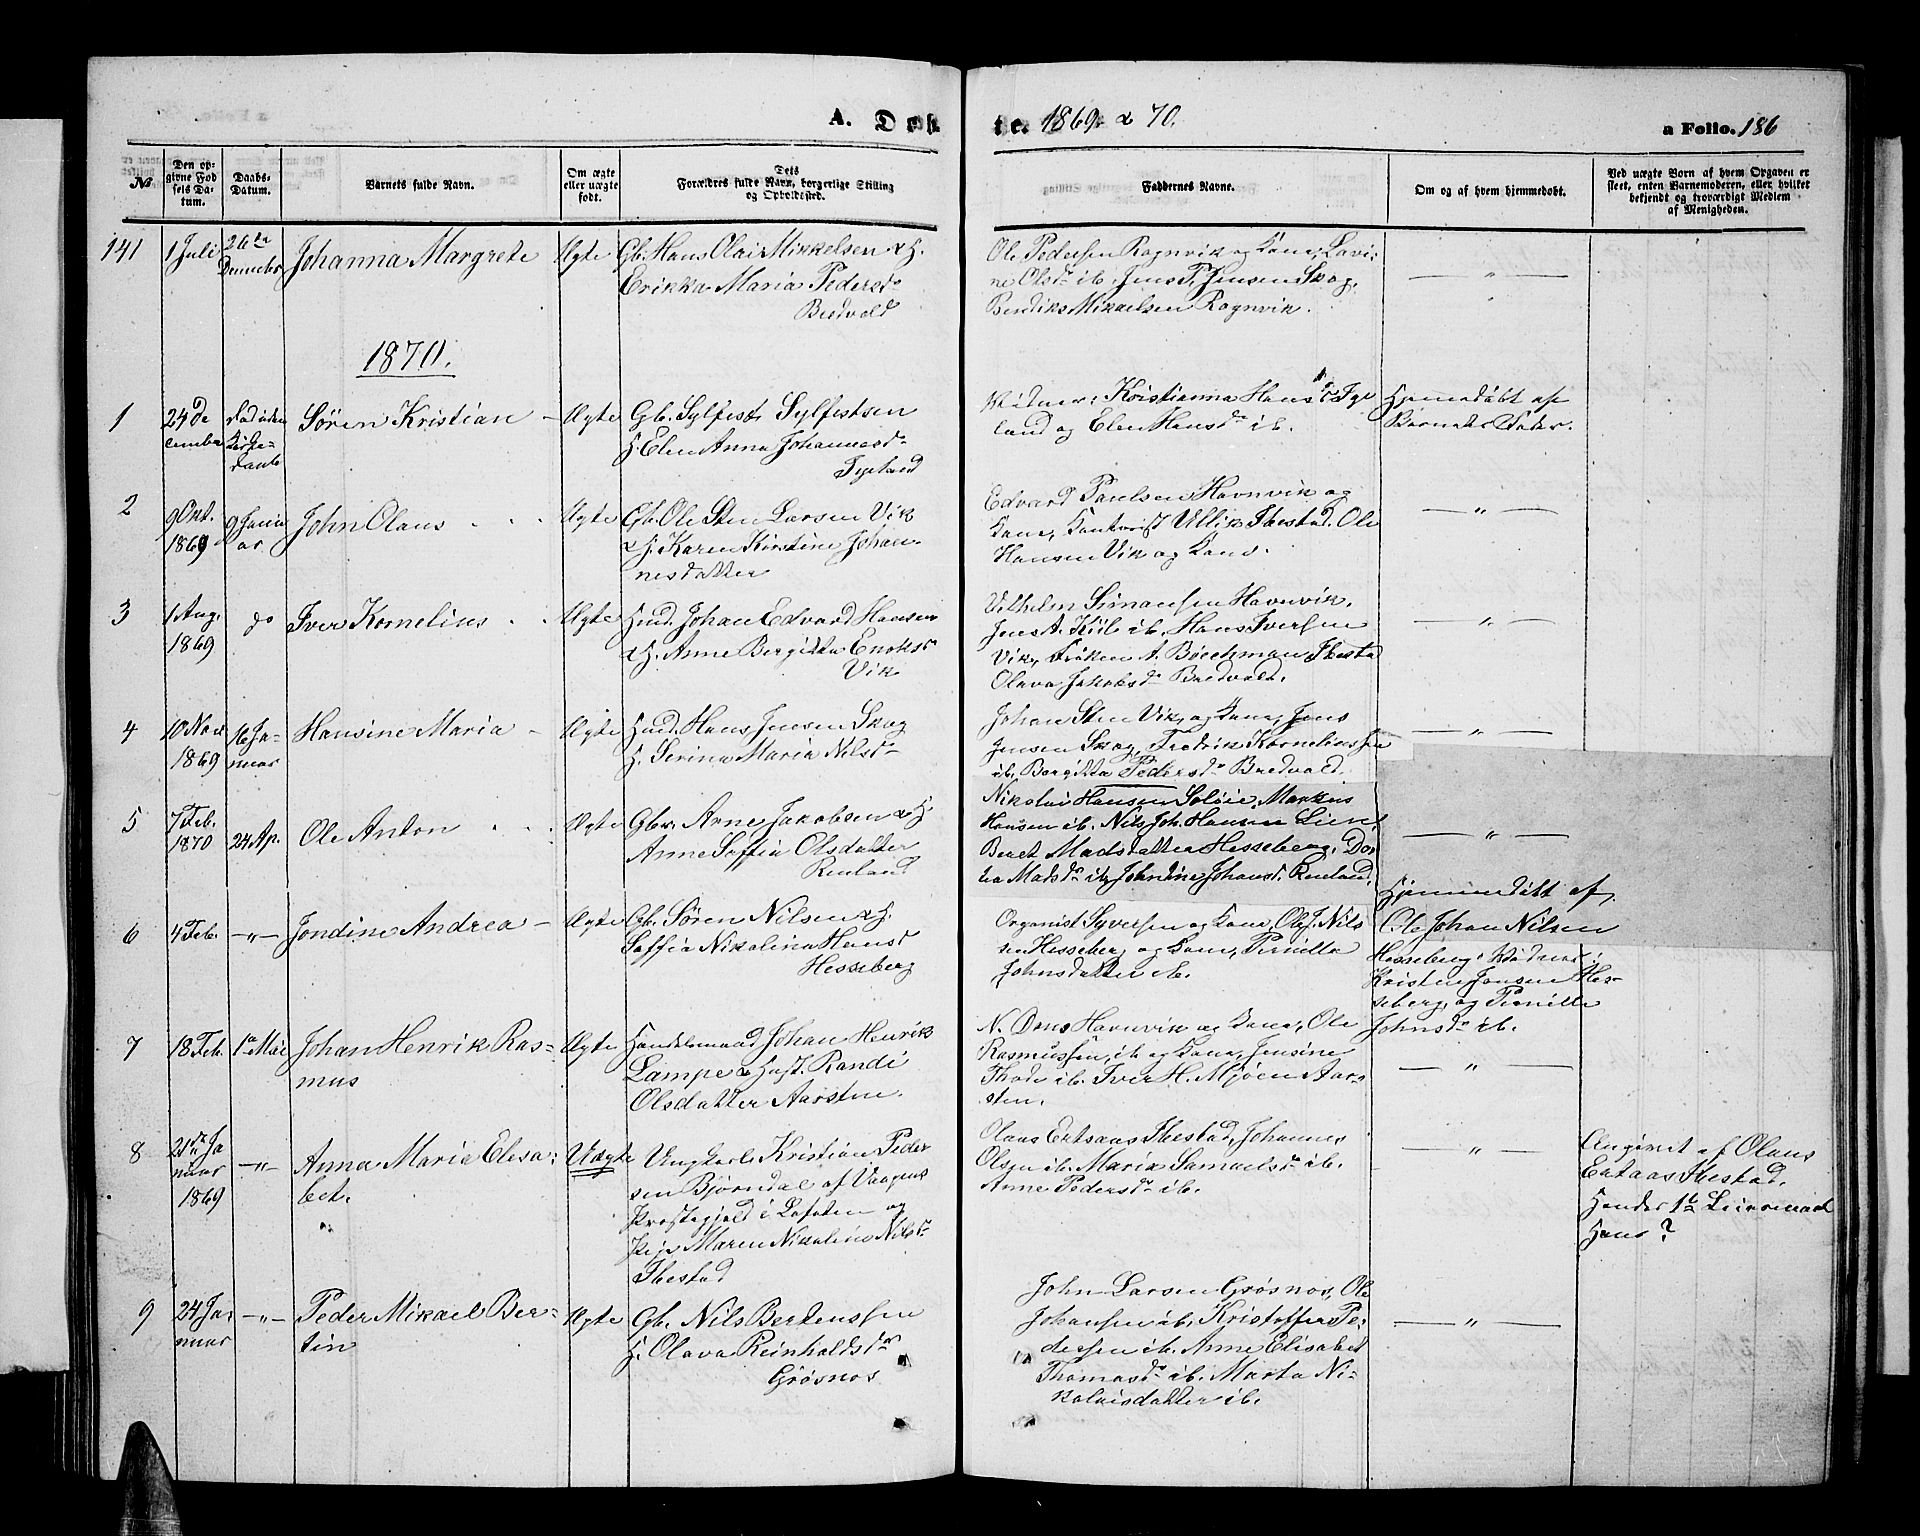 A. Døb
te. 1869 & 70.
a Folio. 186
№
Den op-
givne Fød
sels Da-
tum.
Daabs-
Datum.
Barnets fulde Navn.
Om ægte
eller uægte
født.
Dets
Forældres fulde Navn, borgerlige Stilling
og Opholdssted.
Faddernes Navne.
Om og af hvem hjemmedøbt.
Ved uægte Børn af hvem Opgaven er
skeet, enten Barnemoderen, eller hvilket
bekjendt og troværdigt Medlem
af Menigheden.
141
1 Juli
26de
Decmcber
Johanna Margrete
Ægte
Gb. Hans Olai Mikkelsen & H.
Erikka Maria Pedersd
Bredvold
Ole Pedersen Rognvik og Kone, Lavi-
ne Olsdr ib. Jens P. Jensen Skog,
Bendiks Mikaelsen Rognvik.
— " —
1870.
1
24 De
cember
død uden
Kirke-
daab
Søren Kristian —
Ægte
Gb. Sylfest Sylfestsen
H. Elen Anna Johannesdr
Vidner: Kristianna Hansdr
land og Elen Hansdr ib.
Hjemmedøbt af
Barnets Fader.
2
9 Okt.
1869
9 Janu
ar
John Olaus
Ægte
Gb. Ole Sten Larsen Vik
& H. Karen Kirstine Johan-
nesdatter
Edvard Paulsen Havnvik og
Kone, Ullik Ibestad. Ole
Hansen Vik og Kone.
— " —
3
1 Aug.
1869
do
Iver Kornelius
Ægte
Hmd. Johan Edvard Hansen
& H. Anne Bergitta Enoksdr
Vik
Vilhelm Simonsen Havnvik,
Jens A. Kiil ib. Hans Iversen
Vik, Frøken A. Böeckman, Ibesta
Olava Jakobsdr Bredvold.
— " —
4
10 Nov.
1869
16 Ja-
nuar
Hansine Maria —
Ægte
Hmd. Hans Jensen Skog
H. Serina Maria Nilsdr
Johan Sten Vik, og Kone, Jens
Jensen Skog, Fredrik Korneliussen
ib. Bergitta Pedersdr Bredvold.
— " —
5
7 Feb.
1870
24 Ap.
Ole Anton
Ægte
Gbr. Arne Jakobsen & H.
Anne Soffia Olsdatter
Renland
Nikolai Hansen Soløie, Markus
Hansen ib. Nils Joh. Hansen Lien,
Beret Madsdatter Hesseberg, Dor-
tea Madsdr ib, Johndine Johansd. Renland.
— " —
6
4 Feb.
— " —
Jondine Andrea —
Ægte
Gb. Søren Nilsen & H.
Soffia Nikolina Hansd
Hesseberg
Organist Syversen og Kone, Ole J. Nils
sen Hesseberg og Kone, Pernilla
Johnsdatter ib.
Hjemmedøbt af
Ole Johan Nilsen
Hesseberg. Vidner:
Kristen Jensen Hes-
seberg, og Pernille
Johnsdr ib.
7
18 Feb.
1ste Mai
Johan Henrik Ras-
mus
Ægte
Handelsmand Johan Henrik
Lampe & Hust. Randi
Olsdatter Aarsten.
N. Dons Havnvik og Kone, Ole
Rasmussen, ib og Kone, Jensine
Thode ib. Iver H. Mjøen Aar-
sten.
— " —
8
21de Ja
nuar
1869
— " —
Anna Marie Elesa-
bet.
Uægte
Ungkarl Kristian Peder
sen Bjørndal af Vaagens
Præstegjeld i Lofoten og
Pige Maren Nikoline Nilsdr
Ibestad
Olaus Ertsaas Ibestad, Johannes
Olsen ib. Marie Samuelsdr ib.
Anne Pedersdr ib.
— " —
Angivet af Olaus
Ertsaas Ibestad.
Hendes 1te Leiermaal
Hans?
9
24 Ja-
nuar
— " —
Peder Mikael Ber-
tin
Ægte
Gb. Nils Bertenssen
H. Olava Reinholdsdr
Grøsnos
John Larsen Grøsnos, Ole
Johansen ib. Kristoffer Pe-
dersen ib. Anne Elisabet
Thomasdr ib. Marta Ni-
kolaisdatter ib.
— " —